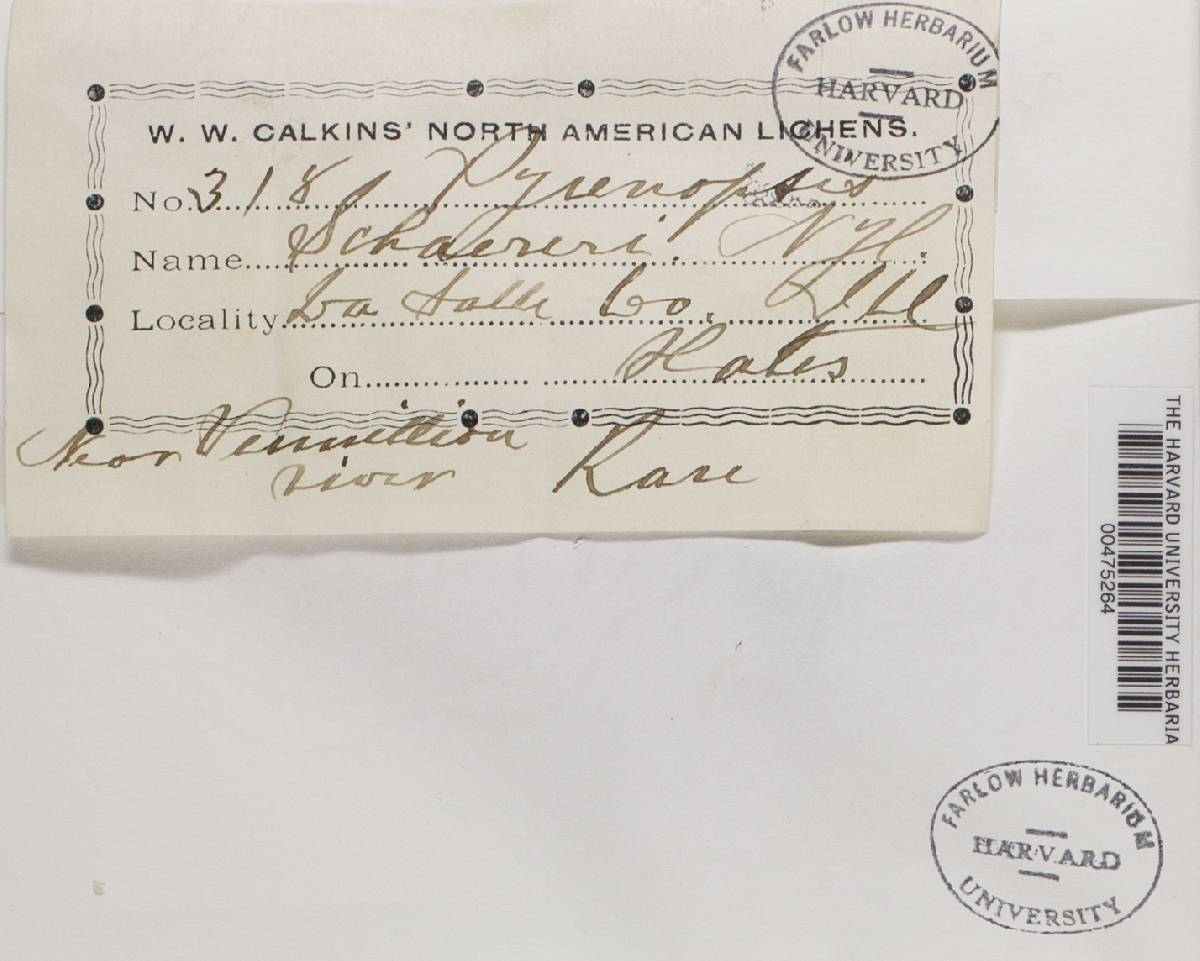 FARLOW HERBARIUM
HARVARD
UNIVERSITY
W. W. CALKINS' NORTH AMERICAN LICHENS.
No. 318 Pyrenopsis
Name Schaereri. Nyl.
Locality La Salle Co. Ill
On
Near Vermillion Rare
river
THE HARVARD UNIVERSITY HERBARIA
00475264
FARLOW HERBARIUM
HARVARD
UNIVERSITY